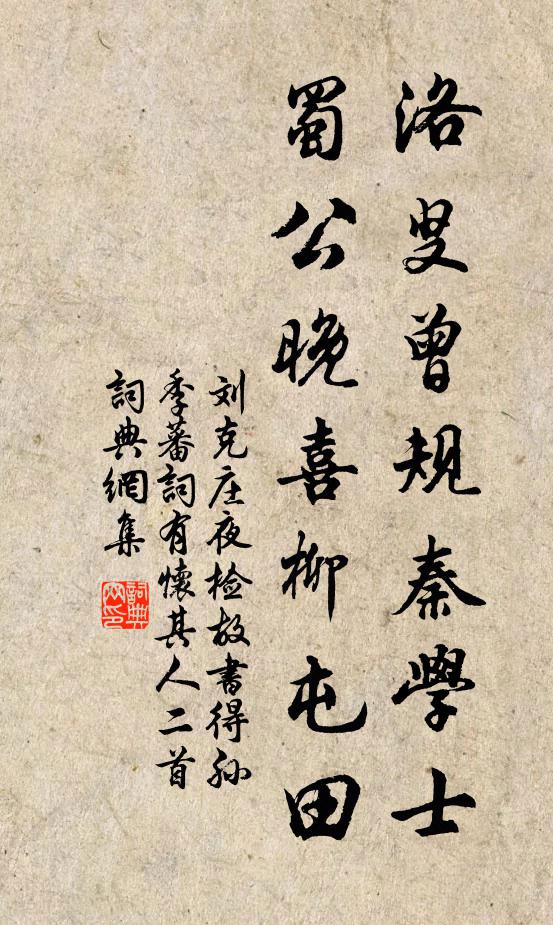 洛叟曾規秦學士
蜀公晚喜柳屯田
刘克庄夜檢故書得孙
季蕃詞有懷其人二首
詞典網集
詞典
网印